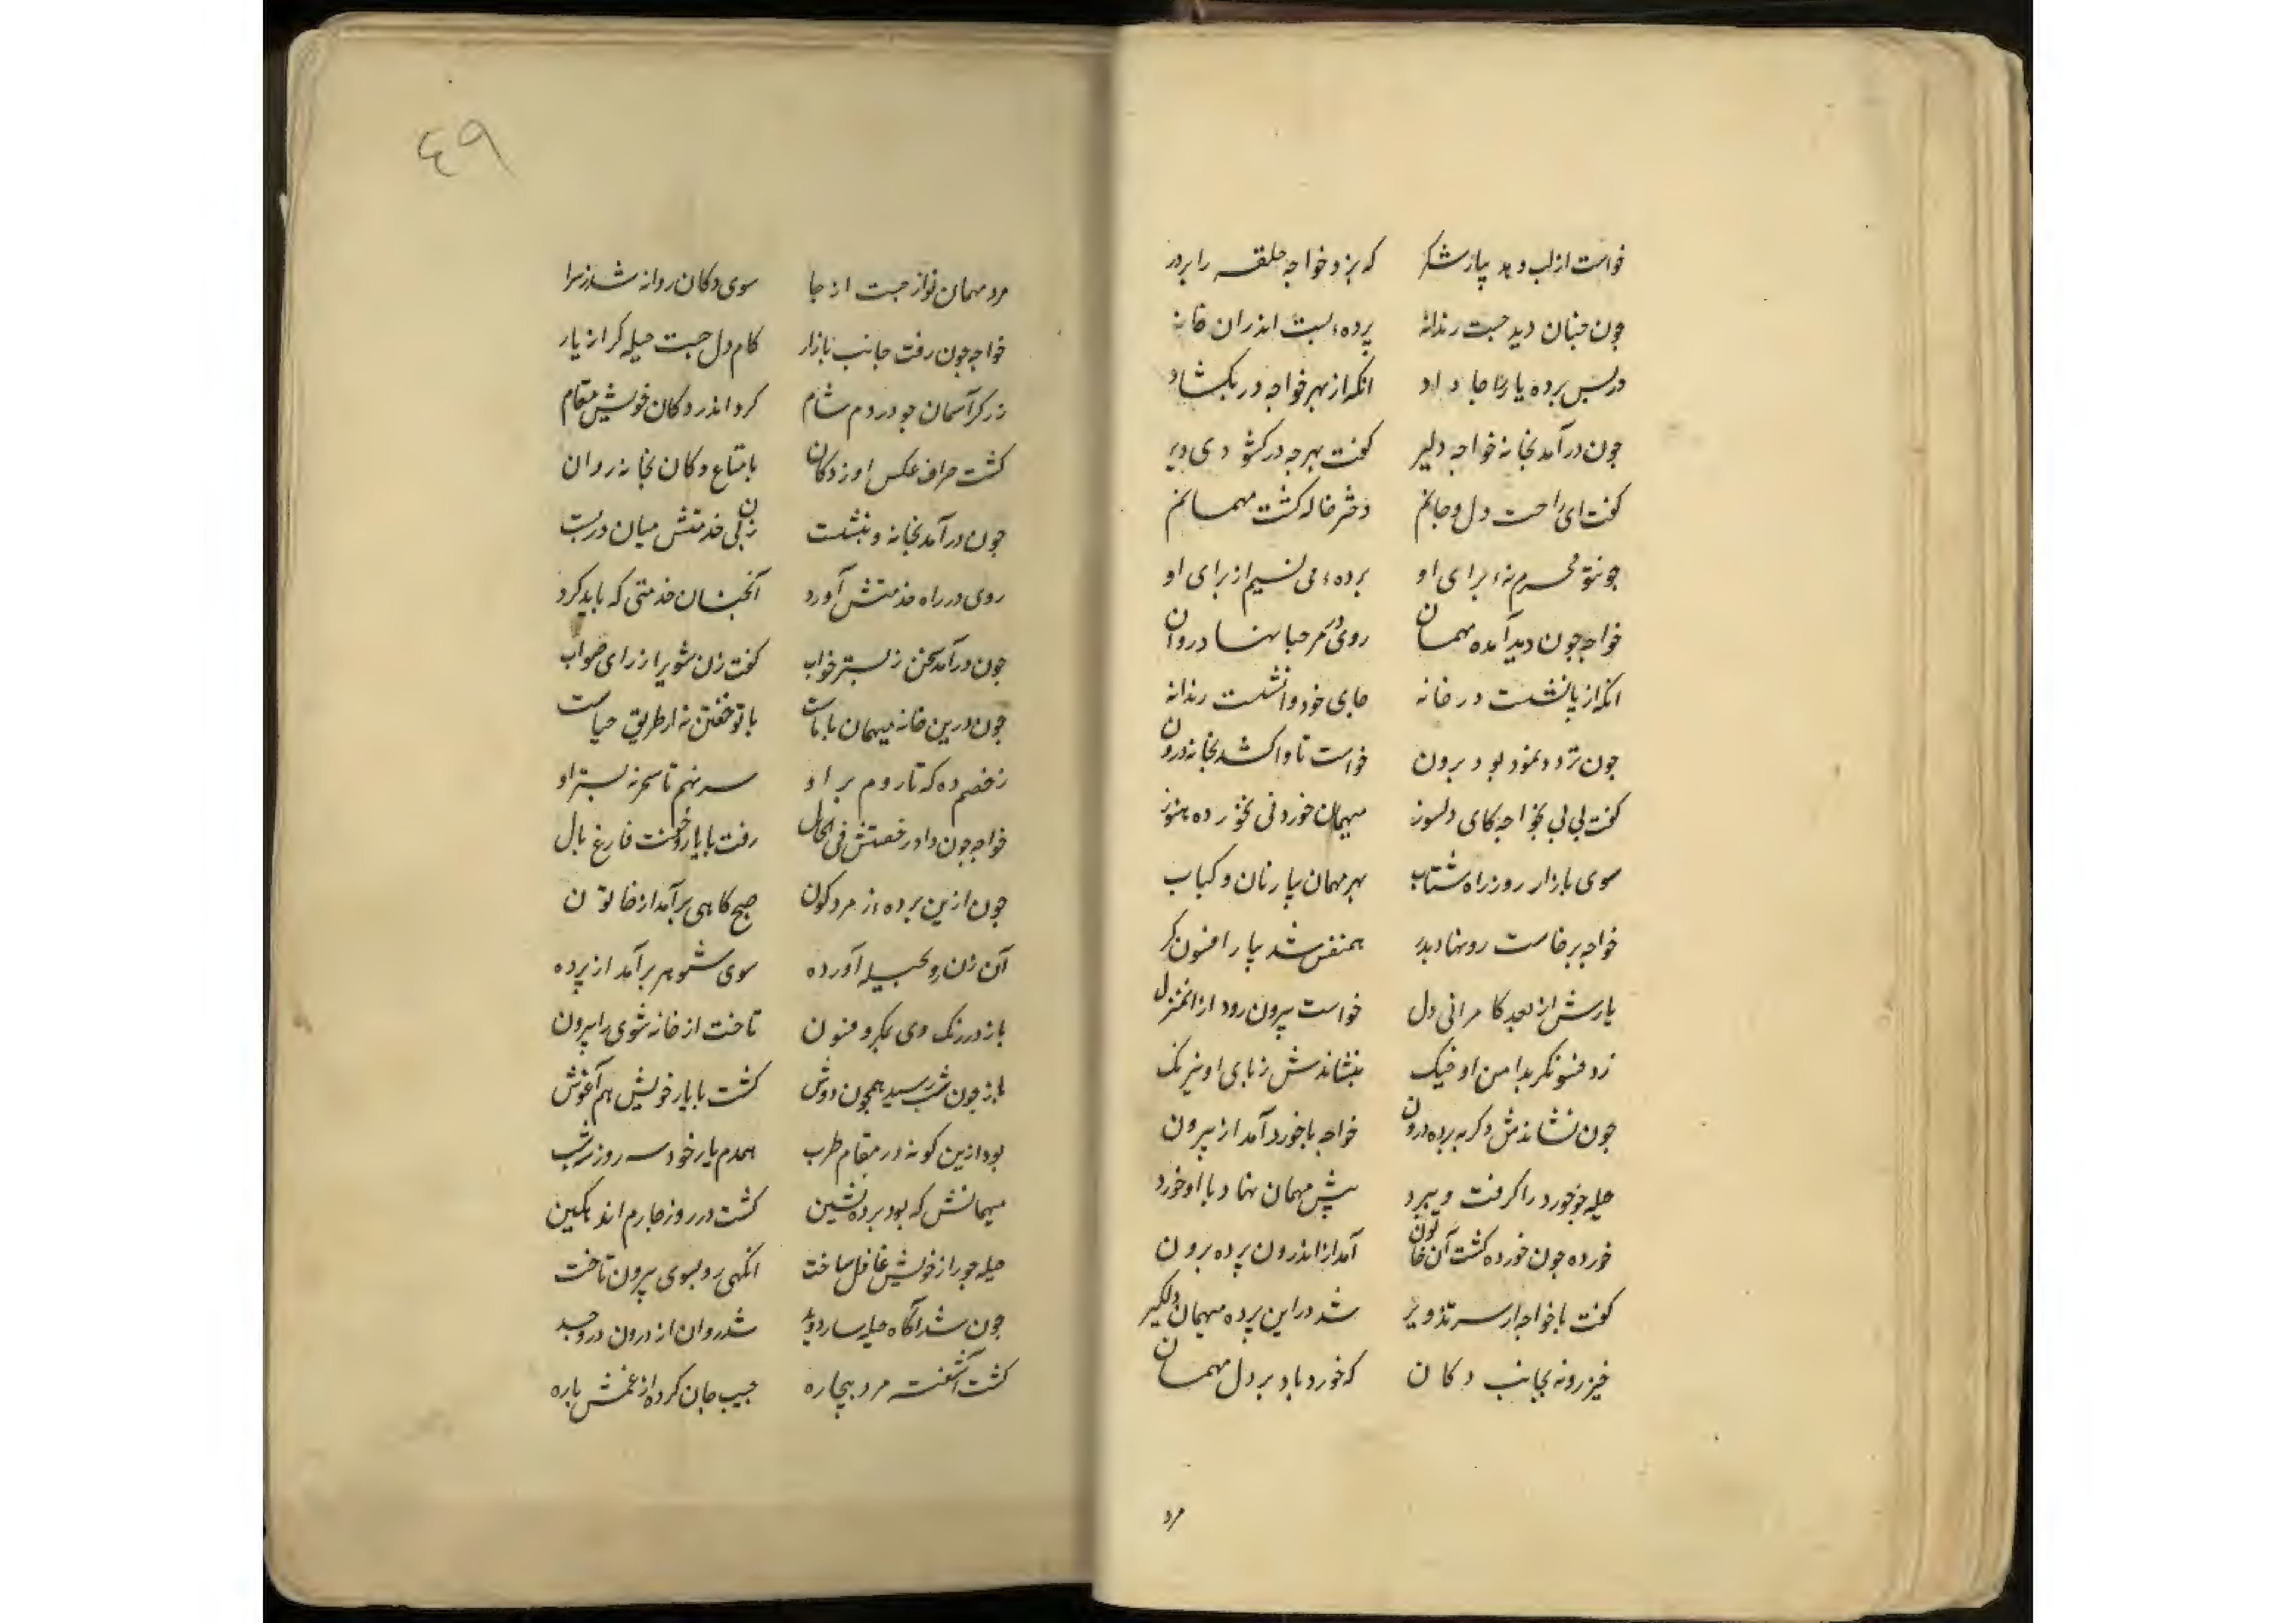 خواست از لب دهد بیارش که بزد خواجه حلقه را بر در
جون جنان دید جست رندانه پرده بست اندران خانه
در پس برده یار را جا داد انکه از بهر خواجه در بکشاد
جون در آمد بخانه خواجه دلیر کفت بهر جه در کشودی دیر
کفت ای راحت دل و جانم دختر خاله کشت مهمانم
جو تو محرم نهٔ برای او برده می از برای او
خواجه جون دید آمده مهمان روی در مرحبا نهاد روان
انکه از پا نشست در خانه جای خود وا نشست رندانه
جون تردد نمود بود برون خواست تا واکشد بخانه درون
کفت بی بی بخواجه کای دلسوز میهمان خوردنی نخورده هنوز
سوی بازار رو ز راه شتاب بهر مهمان بیار نان و کباب
خواجه برخاست رو نهاد بدر همنفس شد بیار افسون کر
یارش از بعد کامرانی دل خواست بیرون رود از انمنزل
زد فسونکر بدامن او جنک بنشاندش ز پای او نیرنک
جون نشاندش دکر به برده درون خواجه با خورد آمد از بیرون
حیله جو خورد را کرفت و ببرد پیش مهمان نهاد و با او خورد
خورده جون خورده کشت آن خاتون آمد از اندرون پرده برون
کفت با خواجه از سر تزویر شد در این پرده میهمان دلکیر
خیز رو نه بجانب دکان که خورد باد بر دل مهمان
مرد
٤٩
مرد مهمان نواز جست از جا سوی دکان روانه شد ز سرا
خواجه جون رفت جانب بازار کام دل جست حیله کر از یار
زرکر آسمان جو در دم شام کرد اندر دکان خویش مقام
کشت صراف عکس او ز دکان با متاع دکان بخانه روان
جون در آمد بخانه و بنشست زن پی خدمتش میان در بست
روی در راه خدمتش آورد آنجنان خدمتی که باید کرد
جون در آمد سخن ز بستر خواب کفت زن شوی را ز رای صواب
جون درین خانه میهمان با ماست با تو خفتن نه از طریق حیاست
رخصتم ده که تا روم بر او سر نهم تا سحر به بستر او
خواجه جون داد رخصتش فی الحال رفت با یار و خفت فارغ بال
جون ازین برده زمردکون صبحکاهی برآمد از خاتون
آن زن رو بحیله آورده سوی شوهر برآمد از پرده
باز در رنک دی بمکر و فنون تاخت از خانه شوی را بیرون
باز جون شب رسید همجون دوش کشت با یار خویش هم آغوش
بود ازین کونه در مقام طرب همدم یار خود سه روز و شب
میهمانش که بود برده نشین کشت در روز جارم اندهکین
حیله جو را ز خویش غافل ساخت انکهی رو بسوی بیرون تاخت
جون شد آکاه حیله ساز دوید شد روان از درون در و جید
کشت آشفته مرد بیچاره جیب جان کرده از غمش باره